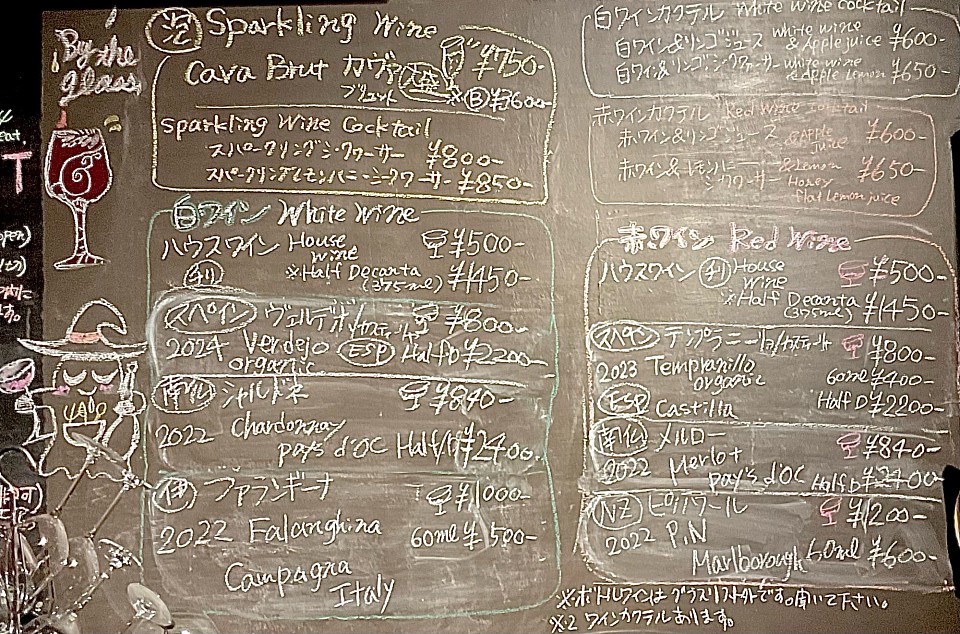 By the
glass
泡 Sparkling Wine
Cava Brut カヴァ
ブリュット
¥750-
※Ⓑ¥3600-
Sparkling Wine Cocktail
スパークリングシークワーサー ¥800-
スパークリングレモンハニーシークワーサー ¥850-
白ワイン White Wine
ハウスワイン House Wine ¥500-
チリ ※Half Decanta (375ml) ¥1450-
スペイン ヴェルデホ ¥800-
2024 Verdejo organic ESP Half D ¥2200-
南仏 シャルドネ ¥840-
2022 Chardonnay
pays d'OC Half ¥2400-
伊 ファランギーナ ¥1000-
2022 Falanghina 60ml ¥500-
Campagna
Italy
白ワインカクテル White Wine cocktail
白ワイン&リンゴジュース white wine & Apple juice ¥600-
白ワイン&リンゴシークワーサー white wine & apple Lemon ¥650-
赤ワインカクテル Red Wine Cocktail
赤ワイン&リンゴジュース & Apple juice ¥600-
赤ワイン&レモンハニーシークワーサー & Lemon Honey flat Lemon juice ¥650-
赤ワイン Red Wine
ハウスワイン チリ House Wine ¥500-
※Half Decanta (375ml) ¥1450-
スペイン テンプラニーリョ ¥800-
2023 Tempranillo organic 60ml ¥400-
ESP Castilla Half D ¥2200-
南仏 メルロー ¥840-
2022 Merlot pay's d'OC Half D ¥2400-
NZ ピノノワール ¥1200-
2022 P.N
Marlborough 60ml ¥600-
※ボトルワインはグラスリスト外です。聞いて下さい。
※2 ワインカクテルあります。